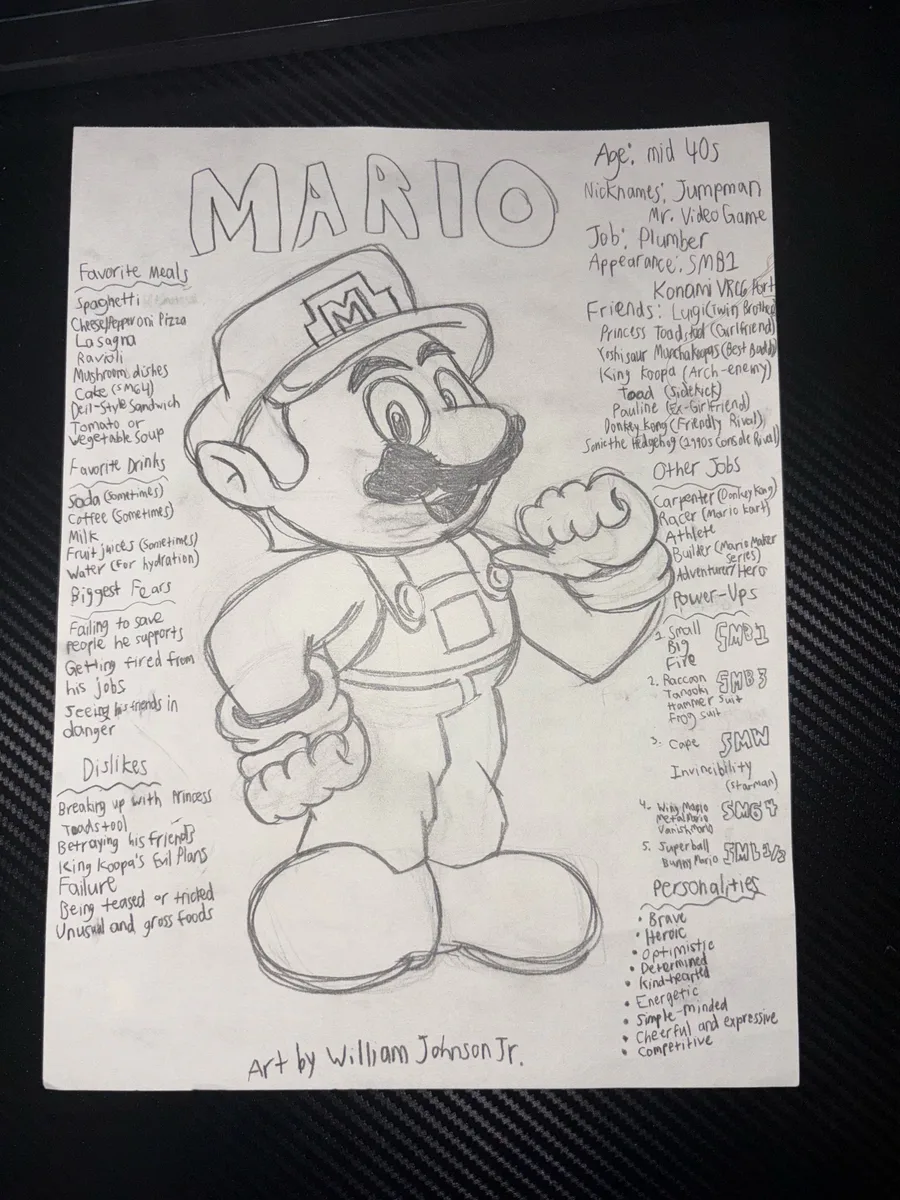 MARIO
M
Favorite Meals
Spaghetti
Cheese/Pepperoni Pizza
Lasagna
Ravioli
Mushroom dishes
Cake (SM64)
Deli-Style Sandwich
Tomato or
Vegetable Soup
Favorite Drinks
Soda (Sometimes)
Coffee (Sometimes)
Milk
Fruit juices (Sometimes)
Water (For hydration)
Biggest Fears
Failing to save
people he supports
Getting tired from
his jobs
Seeing his friends in
danger
Dislikes
Breaking up with Princess
Toadstool
Betraying his friends
King Koopa's Evil Plans
Failure
Being teased or tricked
Unusual and gross foods
Age: mid 40s
Nicknames: Jumpman
Mr. Video Game
Job: Plumber
Appearance: SMB1
Konami VRC6 Port
Friends: Luigi (Twin Brother)
Princess Toadstool (Girlfriend)
Yoshisaur Munchakoopas (Best Buddy)
King Koopa (Arch-enemy)
Toad (Sidekick)
Pauline (Ex-Girlfriend)
Donkey Kong (Friendly Rival)
Sonic the Hedgehog (1990s Console Rival)
Other Jobs
Carpenter (Donkey Kong)
Racer (Mario Kart)
Athlete
Builder (Mario Maker
Series)
Adventurer/Hero
Power-Ups
1. Small SMB1
Big
Fire
2. Raccoon SMB3
Tanooki
Hammer Suit
Frog suit
3. Cape SMW
Invincibility
(Starman)
4. Wing Mario SM64
Metal Mario
Vanish Mario
5. Superball SML 1/2
Bunny Mario
Personalities
• Brave
• Heroic
• Optimistic
• Determined
• Kind-hearted
• Energetic
• Simple-minded
• Cheerful and expressive
• Competitive
Art by William Johnson Jr.